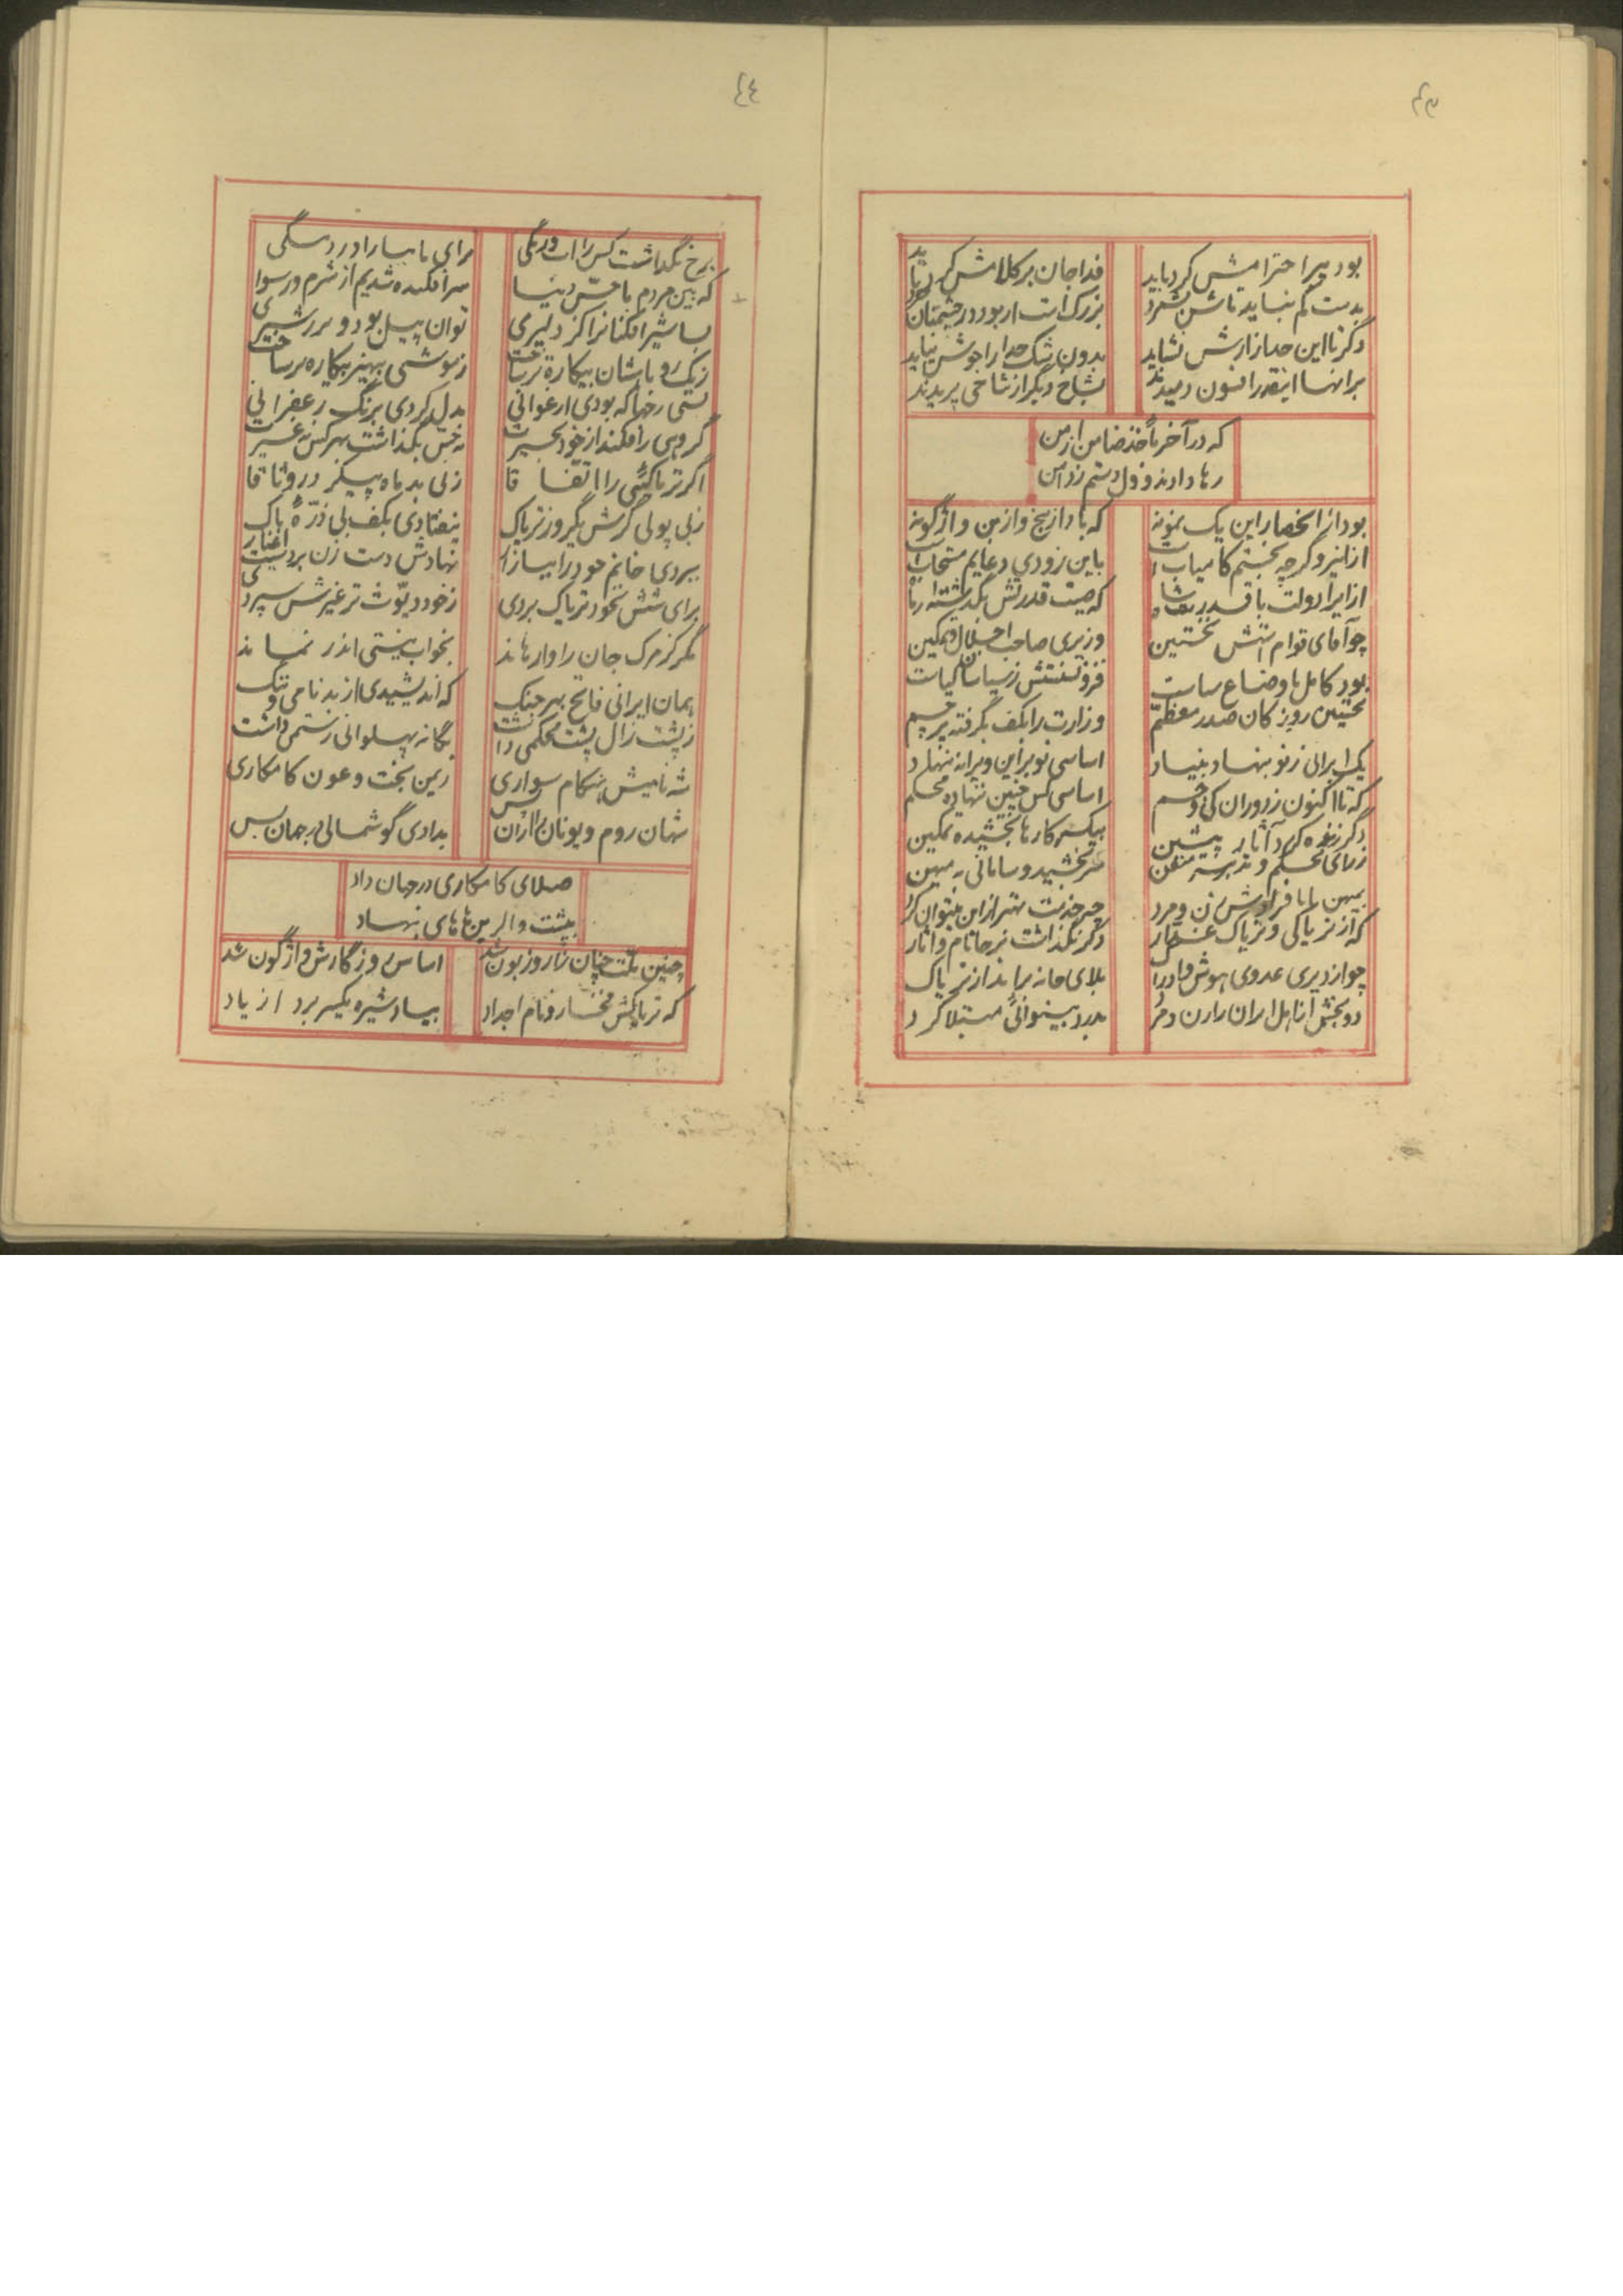 ۴۳
بود پیر احترامش کرد باید
فدا جان بر کلامش کرد باید
بدست کم نباید تاش نشمرد
بزرگ است ار بود در چشمتان خرد
دگر تا این حد آزارش نشاید
بدون شک خدا را خوش نیاید
برآنها اینقدر افسون دمیدند
بشاخ دیگر از شاخی پریدند
که در آخر مأخذ ضامن از من
رها دادند و ول دستم ز دامن
بود از انحصار این یک نمونه
که باد از بیخ و از بن واژگونه
از اینرو گرچه بختم کامیاب است
باین زودی دعایم مستجاب است
که صیت قدرتش بگذشته از ماه
چو آقای قوام آتش نخستین
وزیری صاحب اجلال و تمکین
بود کامل باوضاع سیاست
نخستین روز کان صدر معظم
وزارت را بکف بگرفته پرچم
یک ایرانی ز نو بنهاد بنیاد
اساسی نو بر این ویرانه بنهاد
که تا اکنون ز دوران کی و جم
اساسی کس چنین ننهاده محکم
دگر زنده کرد آثار پیشین
بیکسر کارها بخشیده تمکین
ز رای محکم و تدبیر متقن
سر بخشید و سامانی به میهن
بمیهن تا فراوش زن و مرد
چه خدمت بهتر از این میتوان کرد
که از تریاکی و تریاک غدار
دگر نگذاشت بر جا نام و آثار
بلای خانه برانداز تریاک
دو بخش از اهل ایران را زن و مرد
بدرد بینوائی مبتلا کرد
۴۴
برخ نگذاشت کس را آب و رنگی
برای ما بسا را در د سنگی
که بین مردم با حس دنیا
سر افکنده شدیم از شرم و رسوا
بسا شیر افکنان را کز دلیری
توان پیل بود و برز شیری
ز یک روباشان بیکاره تر ساخت
ز موشی بهنر بیکاره تر ساخت
بسی رخها که بودی ارغوانی
بدل کردی برنگ زعفرانی
گروهی را فکند از خود بحیرت
نه حس بگذاشت بهر کس نه غیرت
اگر تریاکئی را اتفاقا
زنی بد ماه پیکر در وثاقا
ز بی پولی گرش یکروز تریاک
نیفتادی بکف بی ذره باک
ببردی خانم خود را ببازار
نهادش دست زن بر دست اغیار
برای شش نخود تریاک بردی
ز خود دیوث تر غیرش سپردی
مگر کز مرگ جان را وارهاند
بخواب نیستی اندر نماند
همان ایرانی فاتح بهر جنگ
که اندیشیدی از بدنامی و ننگ
ز پشت زال پشت محکمی داشت
یگانه پهلوانی رستمی داشت
شه نامیش هنگام سواری
ز یمن بخت و عون کامکاری
شهان روم و یونان را از آن پس
بدادی گوشمالی در جهان بس
صلای کامکاری در جهان داد
به پشت والرین ها پای بنهاد
چنین ملت چنان زار و زبون شد
اساس روزگارش واژگون شد
که تریاکش مفخار و نام اجداد
بیساد شیره یکسر برد از یاد